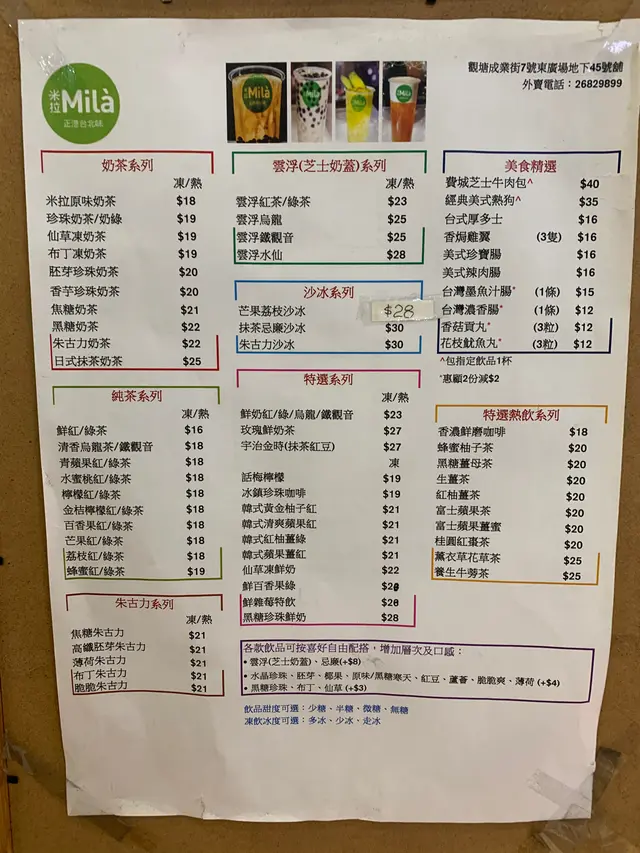 米拉 Milà
正港台北味
觀塘成業街7號東廣場地下45號舖
外賣電話：26829899
奶茶系列
凍/熱
米拉原味奶茶 $18
珍珠奶茶/奶綠 $19
仙草凍奶茶 $19
布丁凍奶茶 $19
胚芽珍珠奶茶 $20
香芋珍珠奶茶 $20
焦糖奶茶 $21
黑糖奶茶 $22
朱古力奶茶 $22
日式抹茶奶茶 $25
純茶系列
凍/熱
鮮紅/綠茶 $16
清香烏龍茶/鐵觀音 $18
青蘋果紅/綠茶 $18
水蜜桃紅/綠茶 $18
檸檬紅/綠茶 $18
金桔檸檬紅/綠茶 $18
百香果紅/綠茶 $18
芒果紅/綠茶 $18
荔枝紅/綠茶 $18
蜂蜜紅/綠茶 $19
朱古力系列
凍/熱
焦糖朱古力 $21
高纖胚芽朱古力 $21
薄荷朱古力 $21
布丁朱古力 $21
脆脆朱古力 $21
雲浮(芝士奶蓋)系列
凍/熱
雲浮紅茶/綠茶 $23
雲浮烏龍 $25
雲浮鐵觀音 $25
雲浮水仙 $28
沙冰系列
芒果荔枝沙冰 $28
抹茶忌廉沙冰 $30
朱古力沙冰 $30
特選系列
凍/熱
鮮奶紅/綠/烏龍/鐵觀音 $23
玫瑰鮮奶茶 $27
宇治金時(抹茶紅豆) $27
凍
話梅檸檬 $19
冰鎮珍珠咖啡 $19
韓式黃金柚子紅 $21
韓式清爽蘋果紅 $21
韓式紅柚薑綠 $21
韓式蘋果薑紅 $21
仙草凍鮮奶 $22
鮮百香果綠
鮮雜莓特飲
黑糖珍珠鮮奶 $28
美食精選
費城芝士牛肉包^ $40
經典美式熱狗^ $35
台式厚多士 $16
香焗雞翼 (3隻) $16
美式珍寶腸 $16
美式辣肉腸 $16
台灣墨魚汁腸* (1條) $15
台灣濃香腸* (1條) $12
香菇貢丸* (3粒) $12
花枝魷魚丸* (3粒) $12
^包指定飲品1杯
*惠顧2份減$2
特選熱飲系列
香濃鮮磨咖啡 $18
蜂蜜柚子茶 $20
黑糖薑母茶 $20
生薑茶 $20
紅柚薑茶 $20
富士蘋果茶 $20
富士蘋果薑蜜 $20
桂圓紅棗茶 $20
薰衣草花草茶 $25
養生牛蒡茶 $25
各款飲品可按喜好自由配搭，增加層次及口感：
• 雲浮(芝士奶蓋)、忌廉(+$8)
• 水晶珍珠、胚芽、椰果、原味/黑糖寒天、紅豆、蘆薈、脆脆爽、薄荷 (+$4)
• 黑糖珍珠、布丁、仙草 (+$3)
飲品甜度可選：少糖、半糖、微糖、無糖
凍飲冰度可選：多冰、少冰、走冰